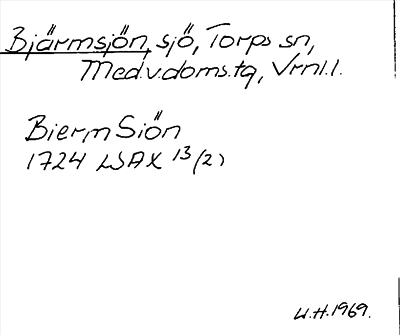 Bjärmsjön, sjö, Torps sn,
Med.v.doms.tg, Vrml.l.
Bierm Siön
1724 LSAX 13/(2)
U.H. 1969.